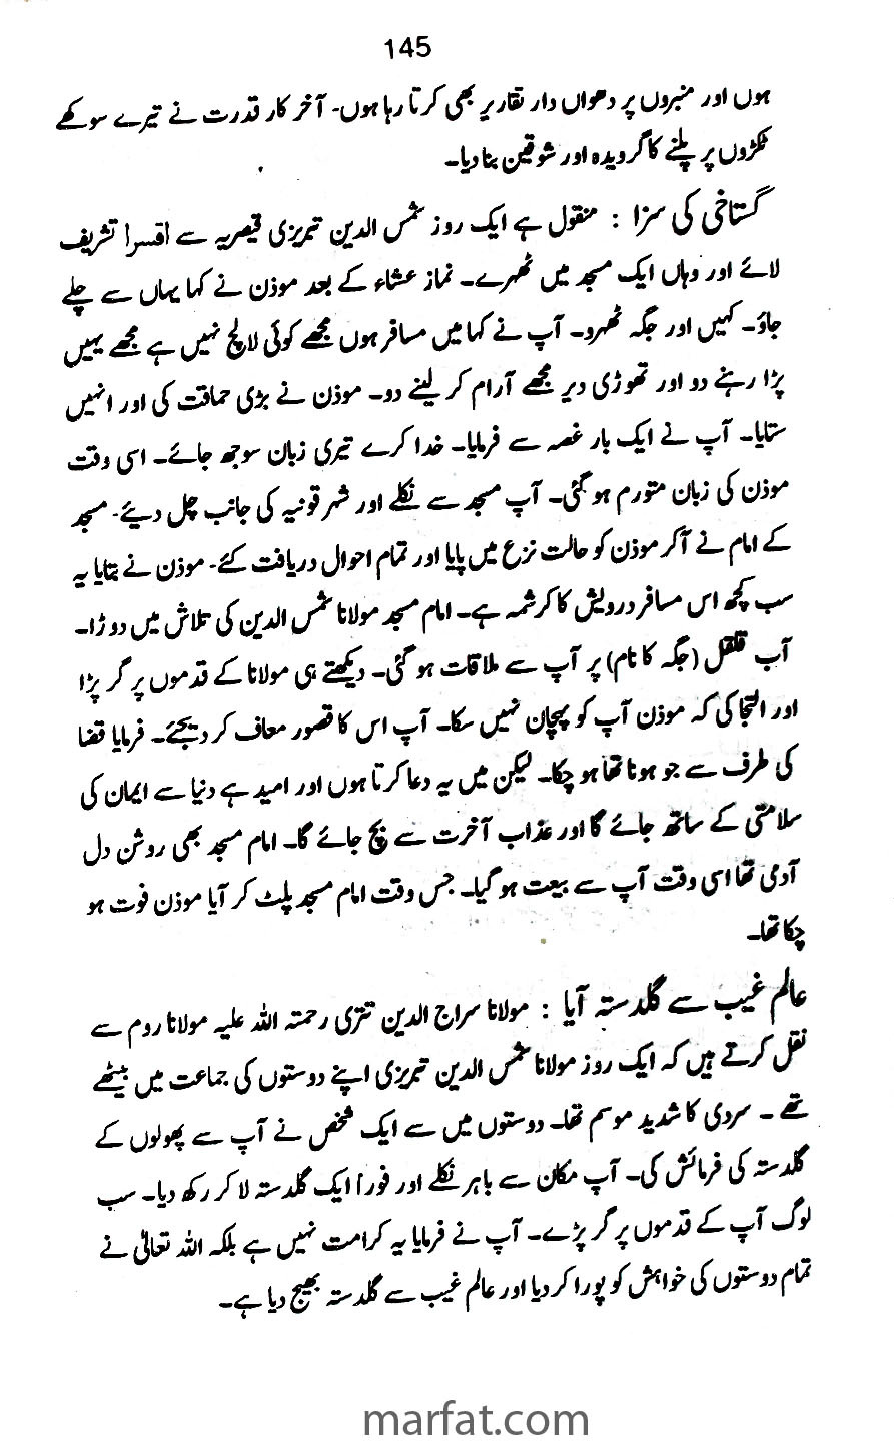 145
ہوں اور منبروں پر دھواں دار تقاریر بھی کرتا رہا ہوں۔ آخر کار قدرت نے تیرے سوکھے
ٹکڑوں پر پلنے کا گرویدہ اور شوقین بنا دیا۔
گستاخی کی سزا : منقول ہے ایک روز شمس الدین تبریزی قیصریہ سے اقسرا تشریف
لائے اور وہاں ایک مسجد میں ٹھہرے۔ نماز عشاء کے بعد موذن نے کہا یہاں سے چلے
جاؤ۔ کہیں اور جگہ ٹھہرو۔ آپ نے کہا میں مسافر ہوں مجھے کوئی لالچ نہیں ہے مجھے یہیں
پڑا رہنے دو اور تھوڑی دیر مجھے آرام کر لینے دو۔ موذن نے بڑی حماقت کی اور انہیں
ستایا۔ آپ نے ایک بار غصہ سے فرمایا۔ خدا کرے تیری زبان سوجھ جائے۔ اسی وقت
موذن کی زبان متورم ہو گئی۔ آپ مسجد سے نکلے اور شہر قونیہ کی جانب چل دیئے۔ مسجد
کے امام نے آکر موذن کو حالت نزع میں پایا اور تمام احوال دریافت کئے۔ موذن نے بتایا یہ
سب کچھ اس مسافر درویش کا کرشمہ ہے۔ امام مسجد مولانا شمس الدین کی تلاش میں دوڑا۔
آب قلقل (جگہ کا نام) پر آپ سے ملاقات ہو گئی۔ دیکھتے ہی مولانا کے قدموں پر گر پڑا
اور التجا کی کہ موذن آپ کو پہچان نہیں سکا۔ آپ اس کا قصور معاف کر دیجئے۔ فرمایا قضا
کی طرف سے جو ہونا تھا ہو چکا۔ لیکن میں یہ دعا کرتا ہوں اور امید ہے دنیا سے ایمان کی
سلامتی کے ساتھ جائے گا اور عذاب آخرت سے بچ جائے گا۔ امام مسجد بھی روشن دل
آدمی تھا اسی وقت آپ سے بیعت ہو گیا۔ جس وقت امام مسجد پلٹ کر آیا موذن فوت ہو
چکا تھا۔
عالم غیب سے گلدستہ آیا : مولانا سراج الدین تتری رحمتہ اللہ علیہ مولانا روم سے
نقل کرتے ہیں کہ ایک روز مولانا شمس الدین تبریزی اپنے دوستوں کی جماعت میں بیٹھے
تھے ۔ سردی کا شدید موسم تھا۔ دوستوں میں سے ایک شخص نے آپ سے پھولوں کے
گلدستہ کی فرمائش کی۔ آپ مکان سے باہر نکلے اور فورا ایک گلدستہ لا کر رکھ دیا۔ سب
لوگ آپ کے قدموں پر گر پڑے۔ آپ نے فرمایا یہ کرامت نہیں ہے بلکہ اللہ تعالیٰ نے
تمام دوستوں کی خواہش کو پورا کر دیا اور عالم غیب سے گلدستہ بھیج دیا ہے۔
marfat.com